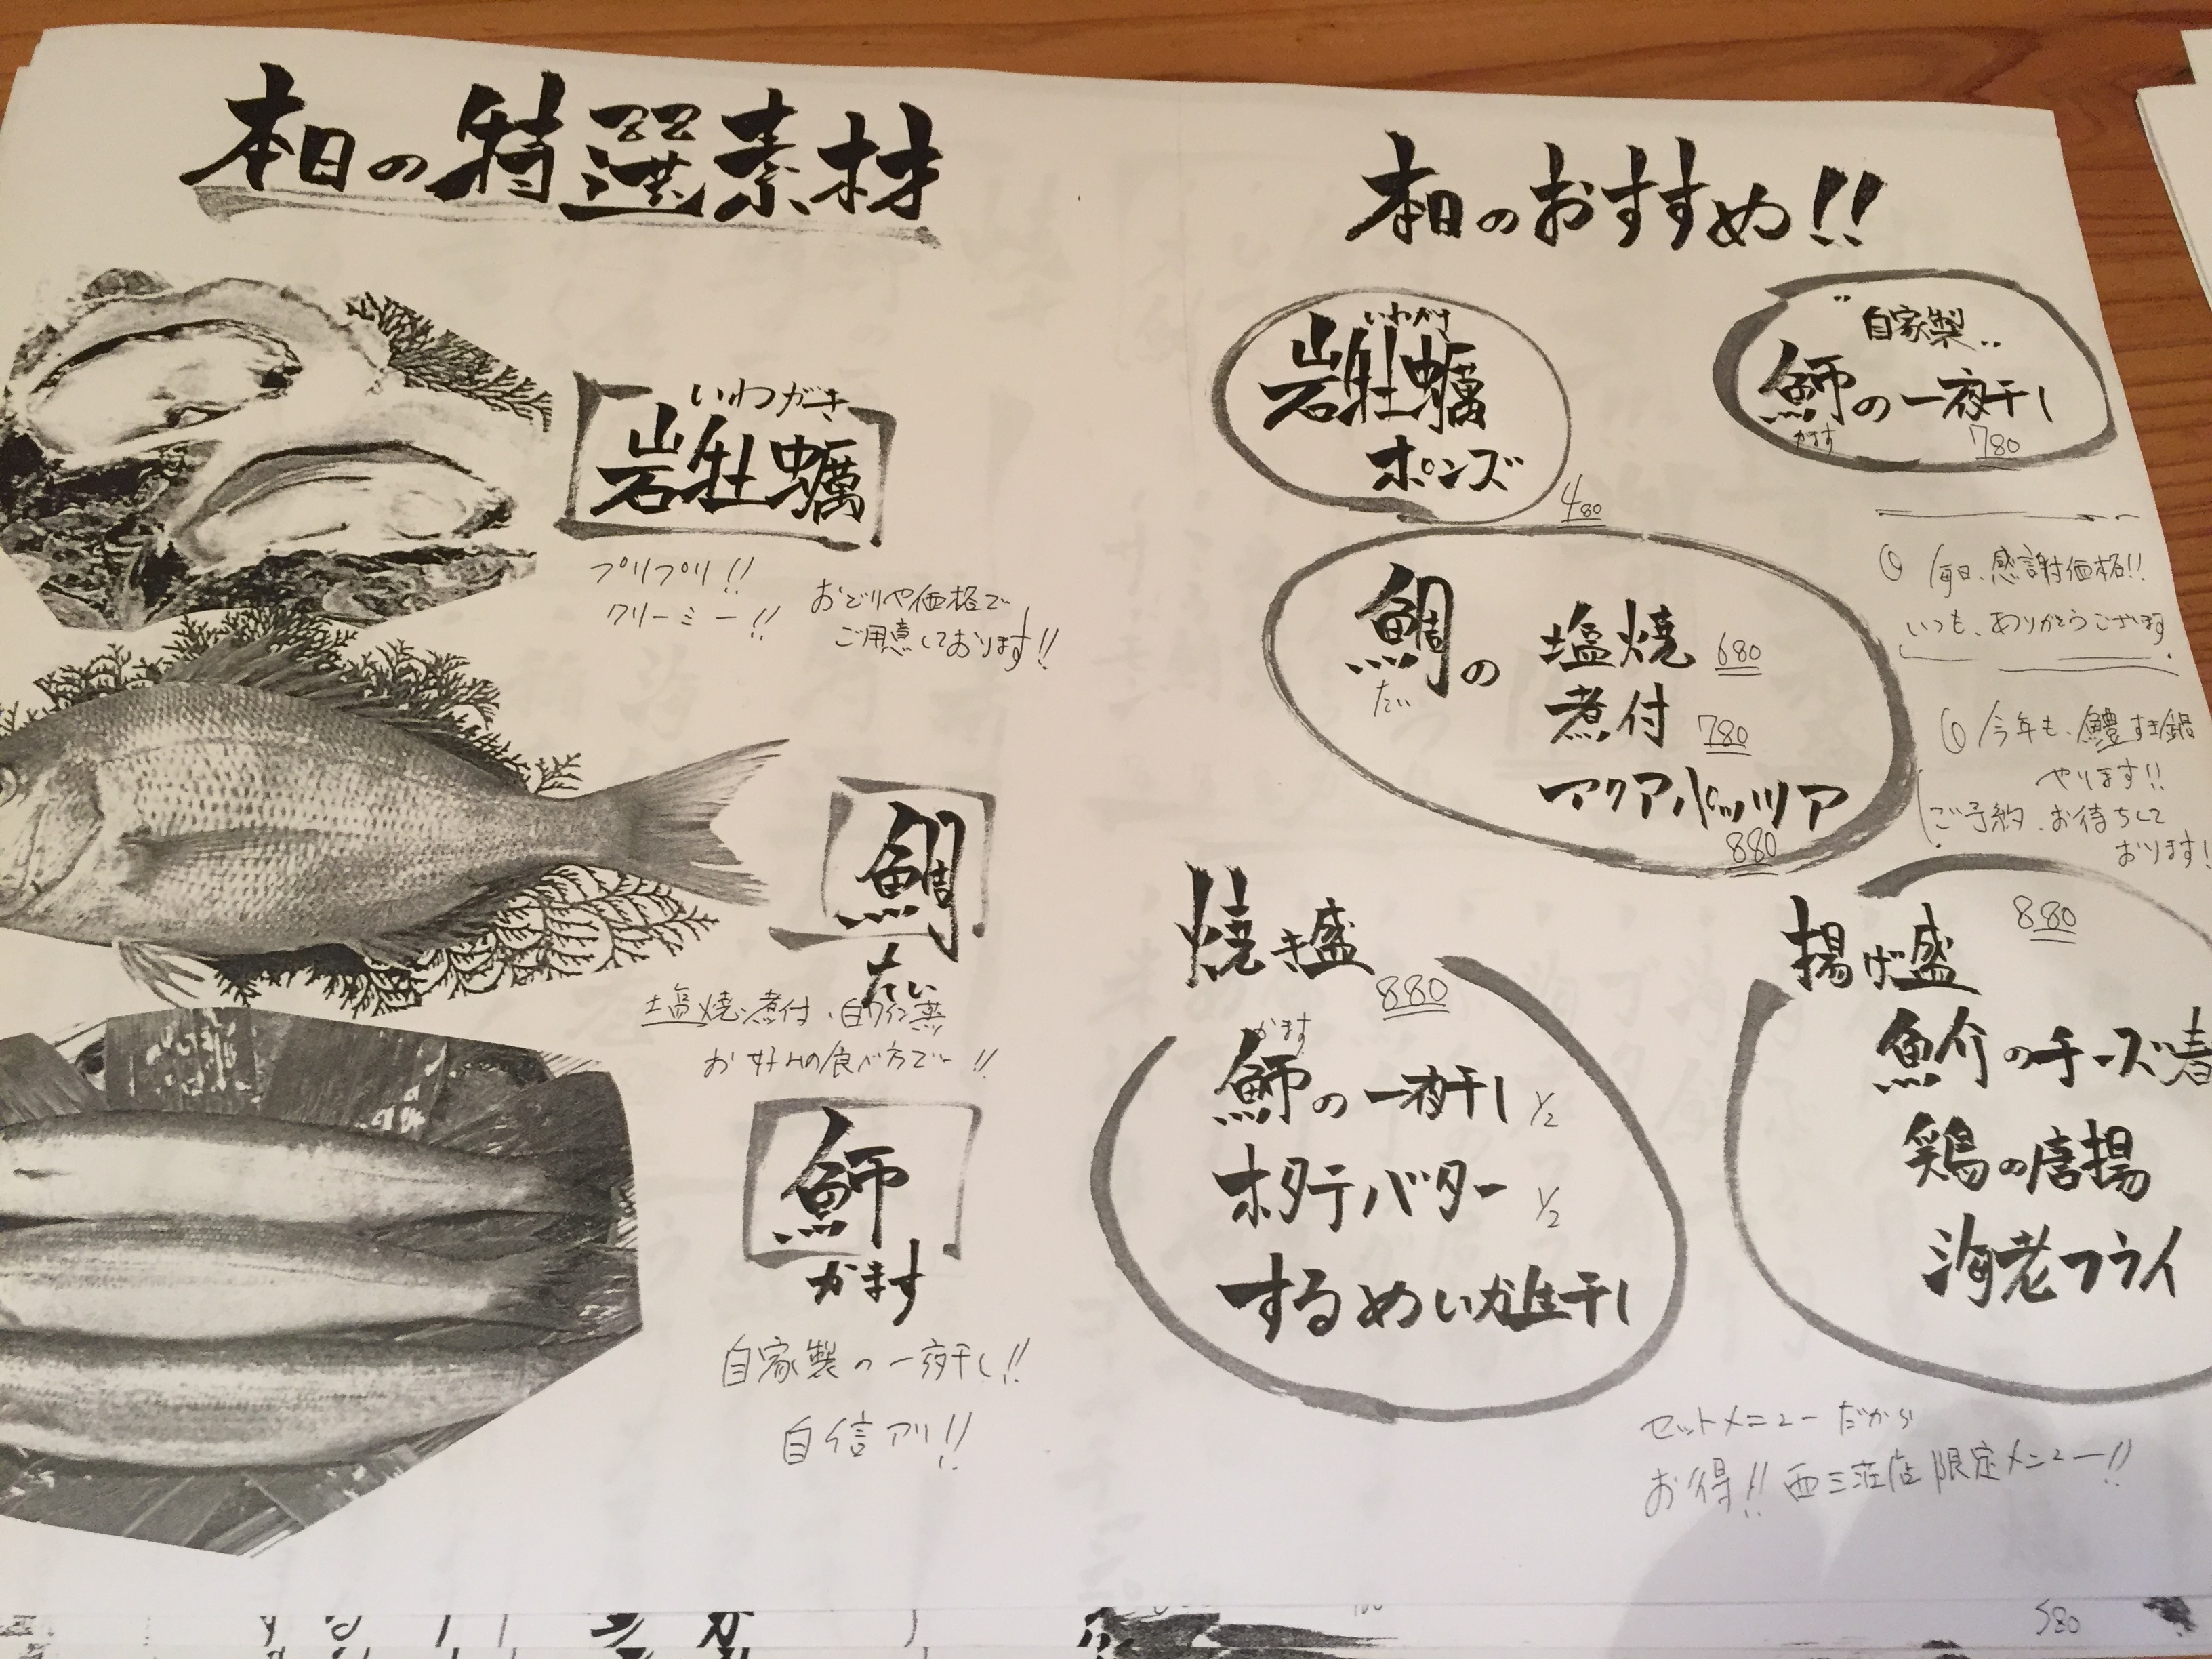 本日の特選素材
いわがき
岩牡蠣
プリプリ!!
クリーミー!!
おどりや価格で
ご用意しております!!
鯛
たい
塩焼、煮付、白ワイン蒸
お好みの食べ方で!!
魳
かます
自家製の一夜干し!!
自信アリ!!
本日のおすすめ!!
いわがき
岩牡蠣
ポンズ
480
"自家製"
魳の一夜干し
かます
780
鯛の
たい
塩焼 680
煮付 780
アクアパッツア
880
毎日、感謝価格!!
いつも、ありがとうございます。
今年も、鱧すき鍋
やります!!
ご予約、お待ちして
おります!
焼き盛
880
かます
魳の一夜干し 1/2
ホタテバター 1/2
するめいか生干し
揚げ盛
880
魚介のチーズ春
鶏の唐揚
海老フライ
セットメニューだから
お得!! 西三荘店限定メニュー!!
580